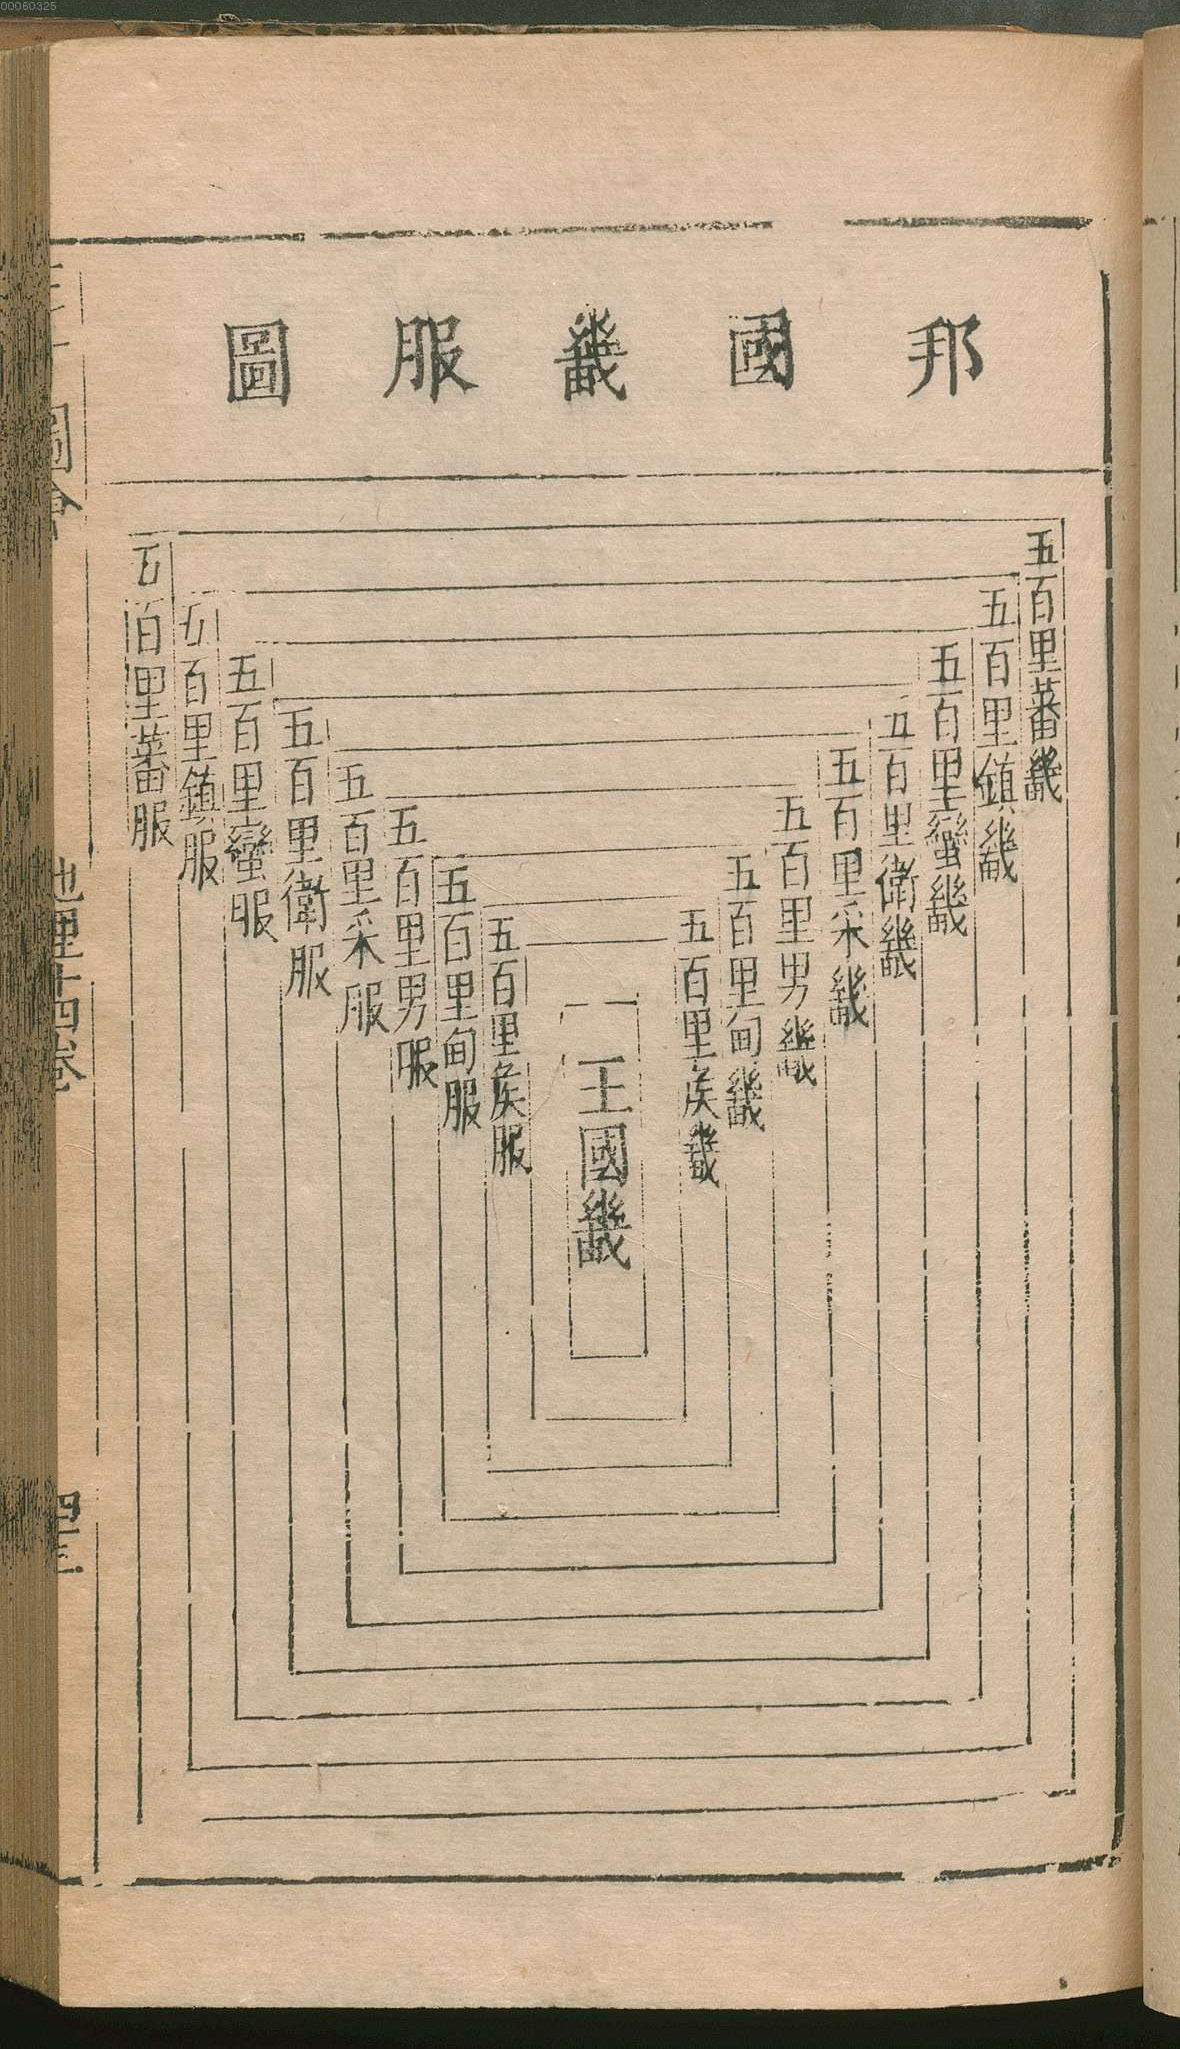 00060325
邦國畿服圖
五百里蕃畿
五百里鎮畿
五百里蠻畿
五百里衛畿
五百里采畿
五百里男畿
五百里甸畿
五百里侯畿
王國畿
五百里侯服
五百里甸服
五百里男服
五百里采服
五百里衛服
五百里蠻服
五百里鎮服
五百里蕃服
圖會
地理十四卷